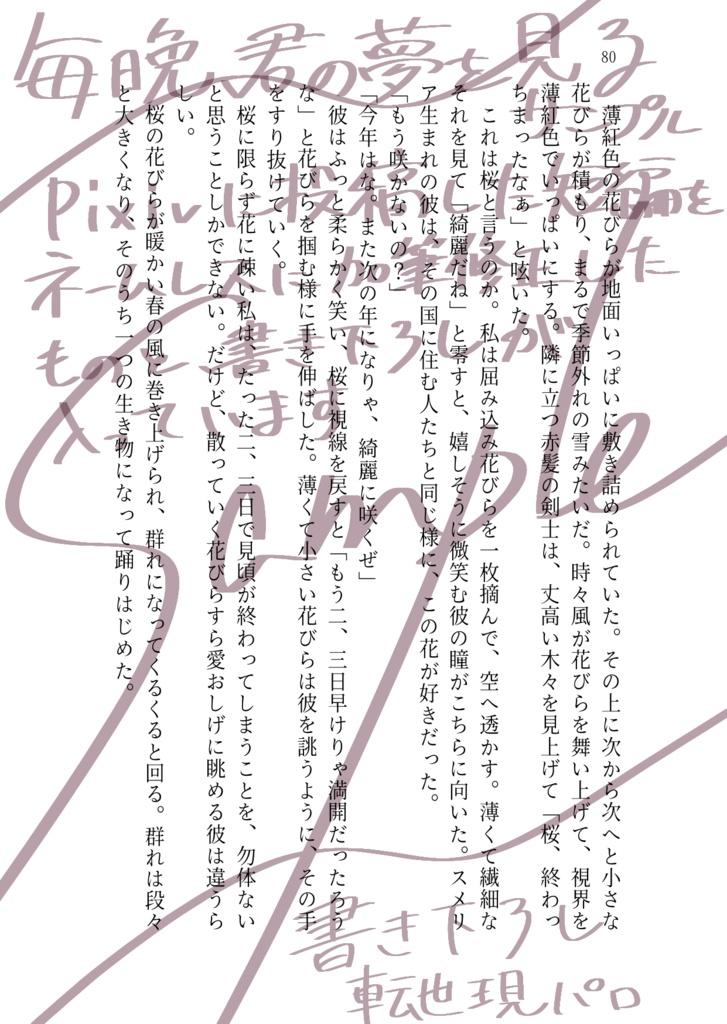 80
毎晩、君の夢を見る
サンプル
pixivに投稿した短編を
ネームレスに加筆修正した
ものと、書き下ろしが
入っています
Sample
薄紅色の花びらが地面いっぱいに敷き詰められていた。その上に次から次へと小さな
花びらが積もり、まるで季節外れの雪みたいだ。時々風が花びらを舞い上げて、視界を
薄紅色でいっぱいにする。隣に立つ赤髪の剣士は、丈高い木々を見上げて「桜、終わっ
ちまったなぁ」と呟いた。
これは桜と言うのか。私は屈み込み花びらを一枚摘んで、空へ透かす。薄くて繊細な
それを見て「綺麗だね」と零すと、嬉しそうに微笑む彼の瞳がこちらに向いた。スメリ
ア生まれの彼は、その国に住む人たちと同じ様に、この花が好きだった。
「もう咲かないの？」
「今年はな。また次の年になりゃ、綺麗に咲くぜ」
彼はふっと柔らかく笑い、桜に視線を戻すと「もう二、三日早けりゃ満開だったろう
な」と花びらを掴む様に手を伸ばした。薄くて小さい花びらは彼を誂うように、その手
をすり抜けていく。
桜に限らず花に疎い私は、たった二、三日で見頃が終わってしまうことを、勿体ない
と思うことしかできない。だけど、散っていく花びらすら愛おしげに眺める彼は違うら
しい。
桜の花びらが暖かい春の風に巻き上げられ、群れになってくるくると回る。群れは段々
と大きくなり、そのうち一つの生き物になって踊りはじめた。
書き下ろし
転生現パロ